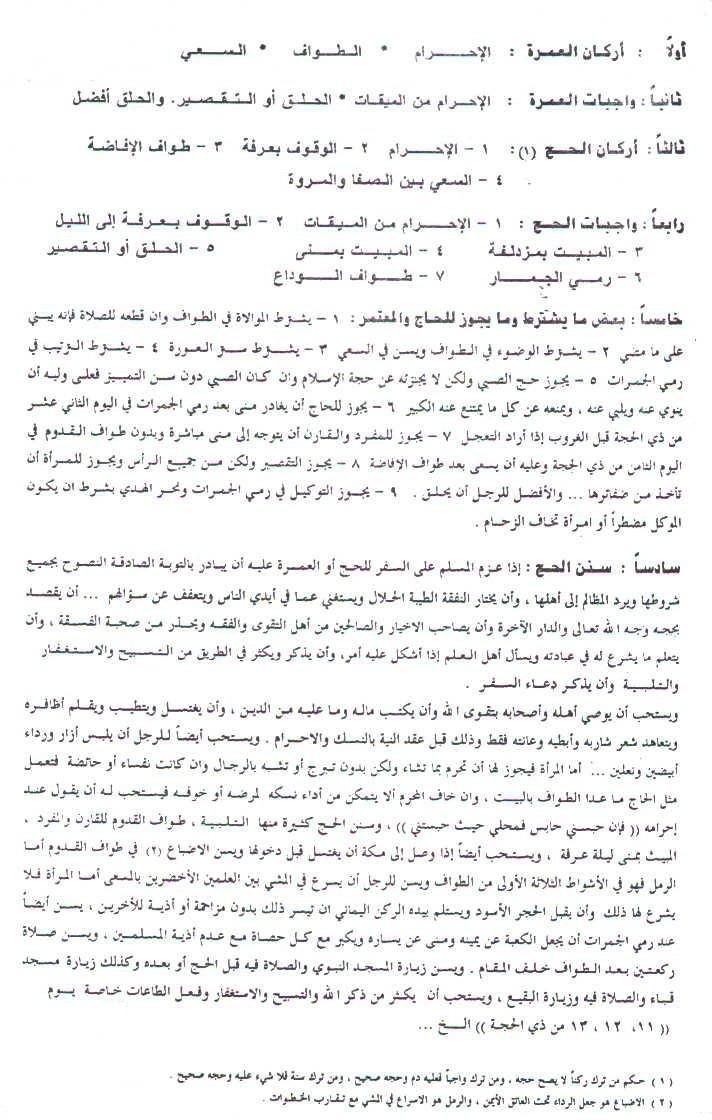 أولاً : أركان العمرة : الإحرام * الطواف * السعي
ثانياً : واجبات العمرة : الإحرام من الميقات * الحلق أو التقصير. والحلق أفضل
ثالثاً : أركان الحج (١) : ١ - الإحرام ٢ - الوقوف بعرفة ٣ - طواف الإفاضة
٤ - السعي بين الصفا والمروة
رابعاً : واجبات الحج : ١ - الإحرام من الميقات ٢ - الوقوف بعرفة إلى الليل
٣ - المبيت بمزدلفة ٤ - المبيت بمنى ٥ - الحلق أو التقصير
٦ - رمي الجمار ٧ - طواف الوداع
خامساً : بعض ما يشترط وما يجوز للحاج والمعتمر : ١ - يشترط الموالاة في الطواف وان قطعه للصلاة فإنه يبني
على ما مضي ٢ - يشترط الوضوء في الطواف ويسن في السعي ٣ - يشترط ستر العورة ٤ - يشترط الترتيب في
رمي الجمرات ٥ - يجوز حج الصبي ولكن لا يجزئه عن حجة الإسلام وان كان الصبي دون سن التمييز فعلى وليه أن
ينوي عنه ويلبي عنه ، ويمنعه عن كل ما يمتنع عنه الكبير ٦ - يجوز للحاج أن يغادر منى بعد رمي الجمرات في اليوم الثاني عشر
من ذي الحجة قبل الغروب إذا أراد التعجل ٧ - يجوز للمفرد والقارن أن يتوجه إلى منى مباشرة وبدون طواف القدوم في
اليوم الثامن من ذي الحجة وعليه أن يسعى بعد طواف الإفاضة ٨ - يجوز التقصير ولكن من جميع الرأس ويجوز للمرأة أن
تأخذ من ضفائرها ... والأفضل للرجل أن يحلق . ٩ - يجوز التوكيل في رمي الجمرات ونحر الهدي بشرط ان يكون
الموكل مضطراً أو امرأة تخاف الزحام .
سادساً : سنن الحج : إذا عزم المسلم على السفر للحج أو العمرة عليه أن يبادر بالتوبة الصادقة النصوح بجميع
شروطها ويرد المظالم إلى أهلها ، وأن يختار النفقة الطيبة الحلال ويستغني عما في أيدي الناس ويتعفف عن سؤالهم ... أن يقصد
بحجه وجه الله تعالى والدار الآخرة وأن يصاحب الاخيار والصالحين من أهل التقوى والفقه ويحذر من صحبة الفسقة ، وأن
يتعلم ما يشرع له في عبادته ويسأل أهل العلم إذا أشكل عليه أمر، وأن يذكر ويكثر في الطريق من التسبيح والاستغفار
والتلبية وأن يذكر دعاء السفر .
ويستحب أن يوصي أهله وأصحابه بتقوى الله وأن يكتب ماله وما عليه من الدين ، وأن يغتسل ويتطيب ويقلم أظافره
ويتعاهد شعر شاربه وأبطيه وعانته فقط وذلك قبل عقد النية بالنسك والاحرام . ويستحب أيضاً للرجل أن يلبس أزار ورداء
أبيضين ونعلين ... أما المرأة فيجوز لها أن تحرم بما تشاء ولكن بدون تبرج أو تشبه بالرجال وان كانت نفساء أو حائضة فتعمل
مثل الحاج ما عدا الطواف بالبيت ، وان خاف المحرم ألا يتمكن من أداء نسكه لمرضه أو خوفه فيستحب له أن يقول عند
إحرامه (( فإن حبسني حابس فمحلي حيث حبستني )) ، وسنن الحج كثيرة منها التلبية ، طواف القدوم للقارن والمفرد ،
المبيت بمنى ليلة عرفة ، ويستحب أيضاً إذا وصل إلى مكة أن يغتسل قبل دخولها ويسن الاضباع (٢) في طواف القدوم أما
الرمل فهو في الأشواط الثلاثة الأولى من الطواف ويسن للرجل أن يسرع في المشي بين العلمين الأخضرين بالسعى أما المرأة فلا
يشرع لها ذلك وأن يقبل الحجر الأسود ويستلم بيده الركن اليماني ان تيسر ذلك بدون مزاحمة أو أذية للأخرين ، يسن أيضاً
عند رمي الجمرات أن يجعل الكعبة عن يمينه ومنى عن يساره ويكبر مع كل حصاة مع عدم أذية المسلمين ، ويسن صلاة
ركعتين بعد الطواف خلف المقام . ويسن زيارة المسجد النبوي والصلاة فيه قبل الحج أو بعده وكذلك زيارة مسجد
قباء والصلاة فيه وزيارة البقيع ، ويستحب أن يكثر من ذكر الله والتسبيح والاستغفار وفعل الطاعات خاصة يوم
(( ١١، ١٢ ، ١٣ من ذي الحجة )) الخ ...
( ١ ) حكم من ترك ركناً لا يصح حجه ، ومن ترك واجباً فعليه دم وحجه صحيح ، ومن ترك سنة فلا شيء عليه وحجه صحيح .
( ٢ ) الاضباع هو جعل الرداء تحت العاتق الأيمن ، والرمل هو الاسراع في المشي مع تقارب الخطوات .